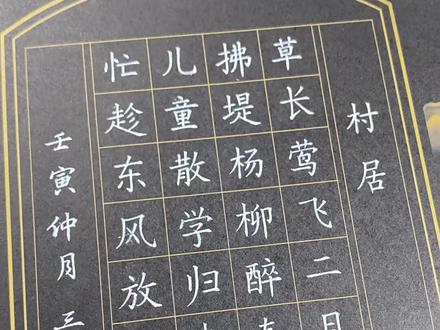 村居
草长莺飞二月
拂堤杨柳醉
儿童散学归
忙趁东风放
壬寅仲月三